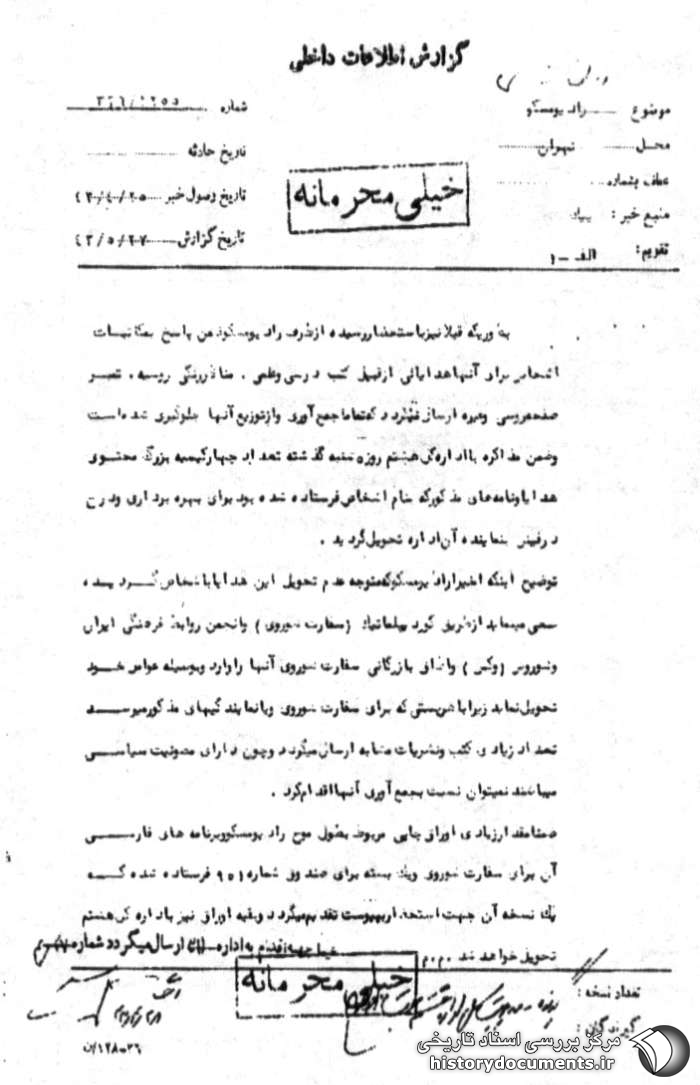 گزارش اطلاعات داخلی
موضوع رادیو مسکو
شماره ۳۲۶/۱۲۵۵
محل تهران
تاریخ حادثه
عطف بشماره
تاریخ وصول خبر ۴۳/۴/۲۵
منبع خبر :
تاریخ گزارش ۴۳/۵/۲۷
تقویم : الف - ۱
خیلی محرمانه
بطوریکه قبلا نیز باستحضار رسیده از طرف رادیو مسکو ضمن پاسخ بمکاتبات
اشخاص برای آنها هدایائی از قبیل کتب درسی و علمی ، مناظر رنگی روسیه ، تمبر
صفحه روسی وغیره ارسال میگردد که تماما جمع آوری و از توزیع آنها جلوگیری شده است
وضمن مذاکره با اداره کل هشتم روز ۵ شنبه گذشته تعداد چهار کیسه بزرگ محتوی
هدایا و نامه های مذکور که بنام اشخاص فرستاده شده بود برای بهره برداری و درج
در فیش بنماینده آن اداره تحویل گردید .
توضیح اینکه اخیرا رادیو مسکو که متوجه عدم تحویل این هدایا باشخاص گردیده
سعی مینماید از طریق کوردیپلماتیک (سفارت شوروی ) وانجمن روابط فرهنگی ایران
وشوروی (وکس ) واتاق بازرگانی سفارت شوروی آنها را وارد وبوسیله عوامل خود
تحویل نماید زیرا با هر پستی که برای سفارت شوروی ویا نمایندگیهای مذکور میرسد
تعداد زیادی کتب ونشریات مشابه ارسال میگردد وچون دارای مصونیت سیاسی
میباشند نمیتوان نسبت بجمع آوری آنها اقدام کرد .
ضمنا مقدار زیادی اوراق چاپی مربوط بطول موج رادیو مسکو وبرنامه های فارسی
آن برای سفارت شوروی ویک بسته برای صندوق شماره ۹۵۱ فرستاده شده که
یک نسخه آن جهت استحضار بپیوست تقدیم میگردد و بقیه اوراق نیز باداره کل هشتم
تحویل خواهد شد . م . م
به اداره ارسال میگردد شماره
خیلی محرمانه
تعداد نسخه :
گیرندگان :
۱۲۸-۳۶/ن
مرکز بررسی اسناد تاریخی
historydocuments.ir